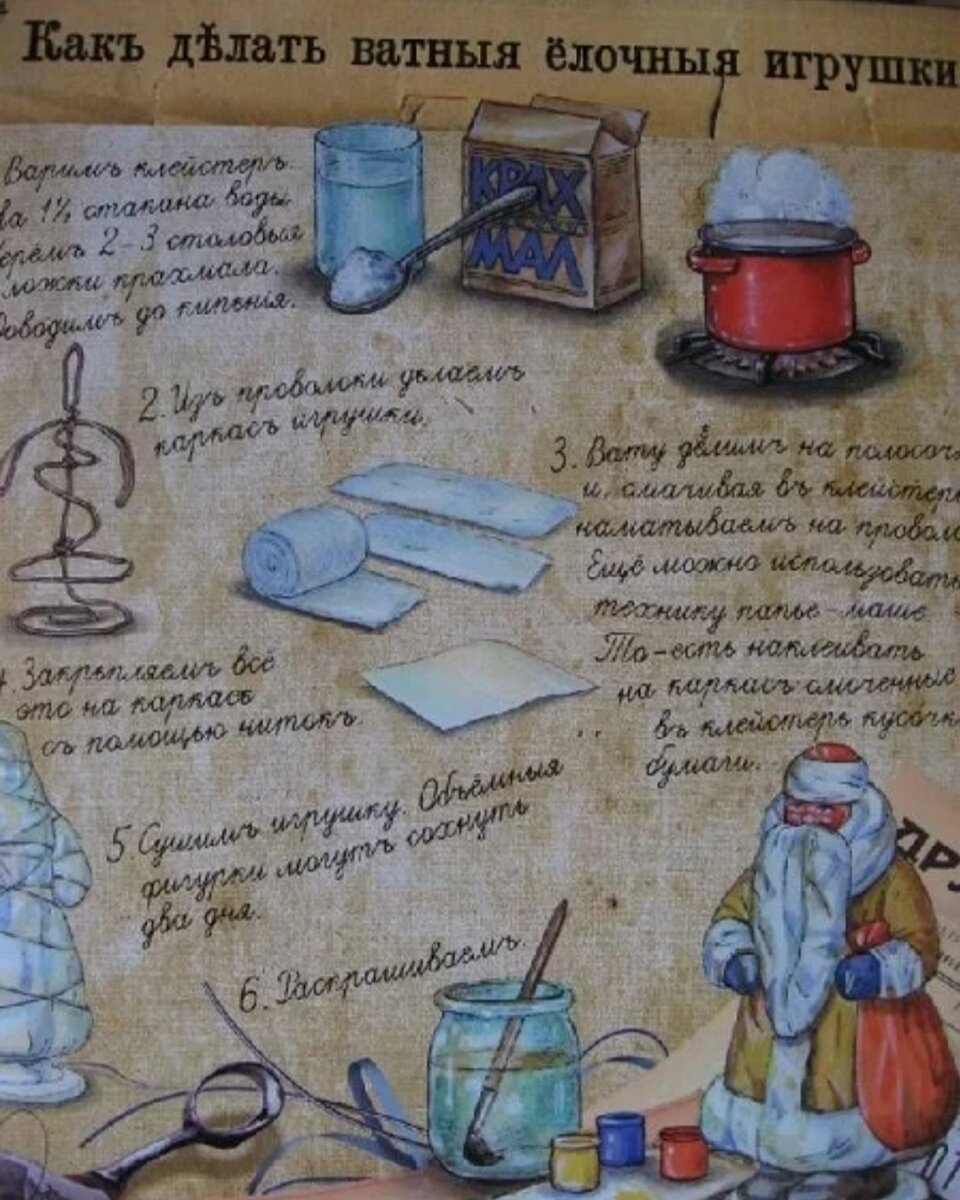 Какъ дѣлать ватныя ёлочныя игрушки
Варимъ клейстеръ.
На 1½ стакана воды
берёмъ 2-3 столовыя
ложки крахмала.
Доводимъ до кипенія.
КРАХ
МАЛ
2. Изъ проволоки дѣлаемъ
каркасъ игрушки.
3. Вату дѣлимъ на полосочк
и, смачивая въ клейстерѣ
наматываемъ на провол
Ещё можно использовать
технику папье-маше.
То-есть наклеивать
на каркасъ смоченные
въ клейстерѣ кусочк
бумаги.
4. Закрѣпляемъ всё
это на каркасѣ
съ помощью нитокъ.
5. Сушимъ игрушку. Объёмныя
фигурки могутъ сохнуть
два дня.
6. Раскрашиваемъ.
ДРУ